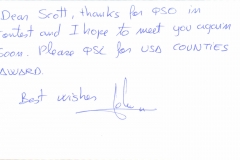 Dear Scott, thanks for QSO in
contest and I hope to meet you again
soon. Please QSL for USA COUNTIES
AWARD.
Best wishes